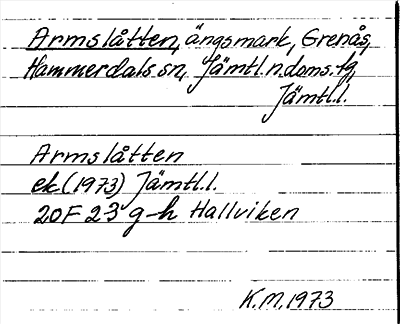 Armslåtten, ängsmark, Grenås,
Hammerdals sn, Jämtl. n. doms. tg,
Jämtl.l.
Armslåtten
ek. (1973) Jämtl.l.
20F 23 g-h Hallviken
K.M. 1973